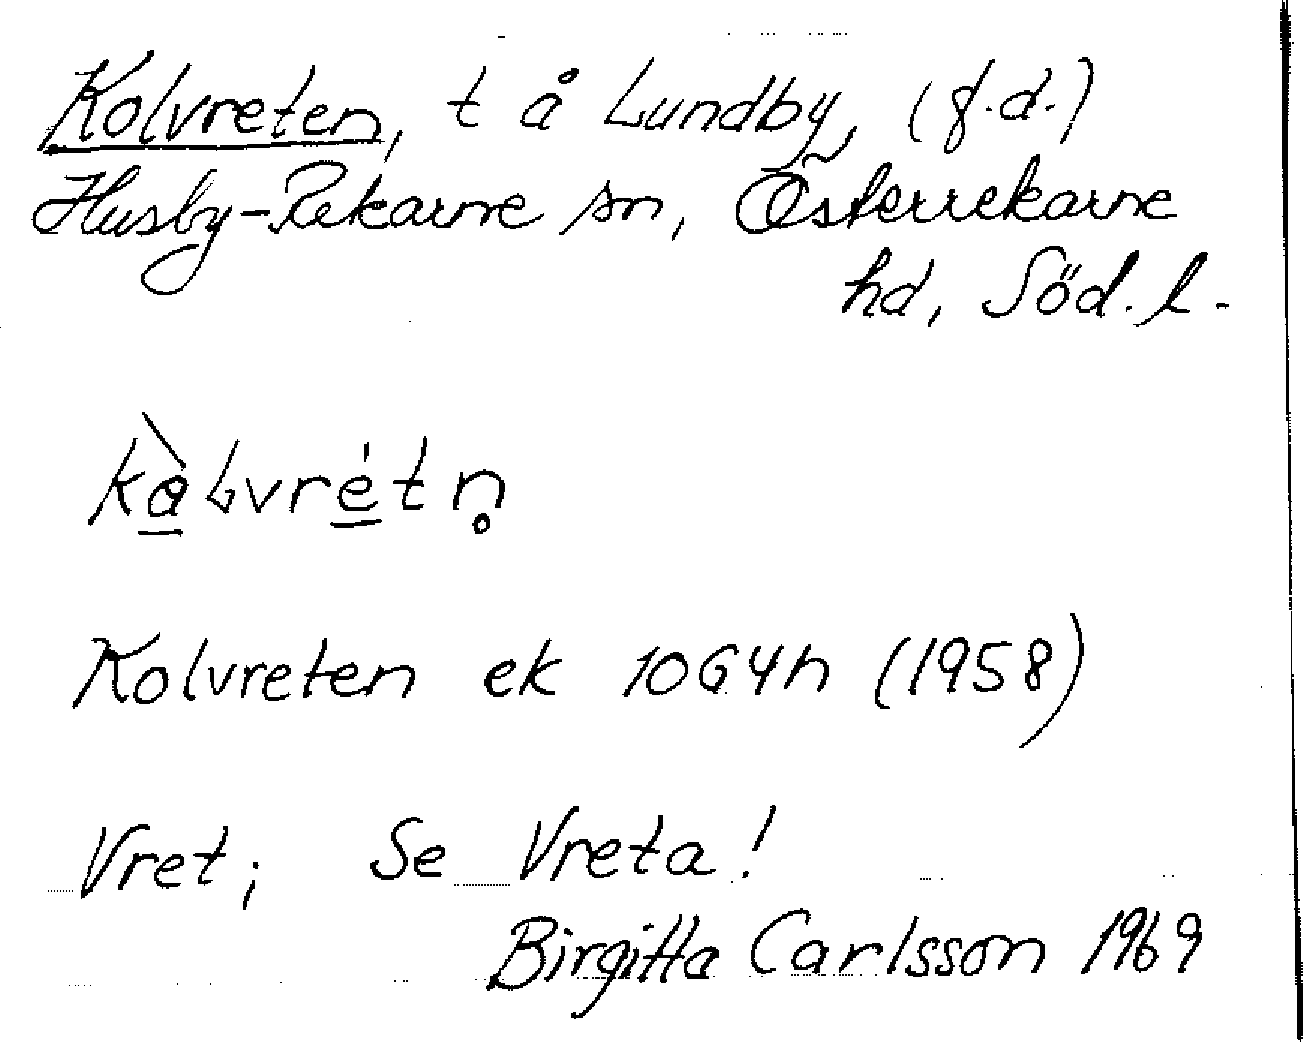 Kolvreten, t å Lundby, (f.d.)
Husby-Rekarne sn, Österrekarne
hd, Söd. l.
kàlvrétn̥
Kolvreten ek 10G4h (1958)
Vret; Se Vreta!
Birgitta Carlsson 1969